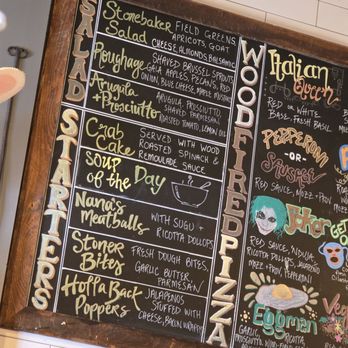 SALAD
Stonebaker
Salad
FIELD GREENS,
APRICOTS, GOAT
CHEESE, ALMONDS, BALSAMIC
Roughage
SHAVED BRUSSEL SPROUTS,
GALA APPLES, PECANS, RED
ONION, BLUE CHEESE, MAPLE
Arugula
+ Prosciutto
ARUGULA, PROSCIUTTO,
SHAVED PARMESAN,
ROASTED TOMATO, LEMON OIL
STARTERS
Crab
Cake
SERVED WITH WOOD
ROASTED SPINACH &
REMOULADE SAUCE
SOUP
of the Day
Nana's
Meatballs
WITH SUGU +
RICOTTA DOLLOPS
Stoner
Bites
FRESH DOUGH BITES,
GARLIC BUTTER,
PARMESAN
Holla Back
Poppers
JALAPENOS
STUFFED WITH
CHEESE, BACON WRAPPED
WOODFIRED PIZZA
Italian
Queen
RED OR WHITE
BASE, FRESH BASIL
PEPPERONI
-OR-
SAUSAGE
RED SAUCE, MOZZ + PROV
Joker
RED SAUCE, 'NDUJA,
RICOTTA DOLLOPS,
MOZZ + PROV, PEPPERONI
GET
Eggman